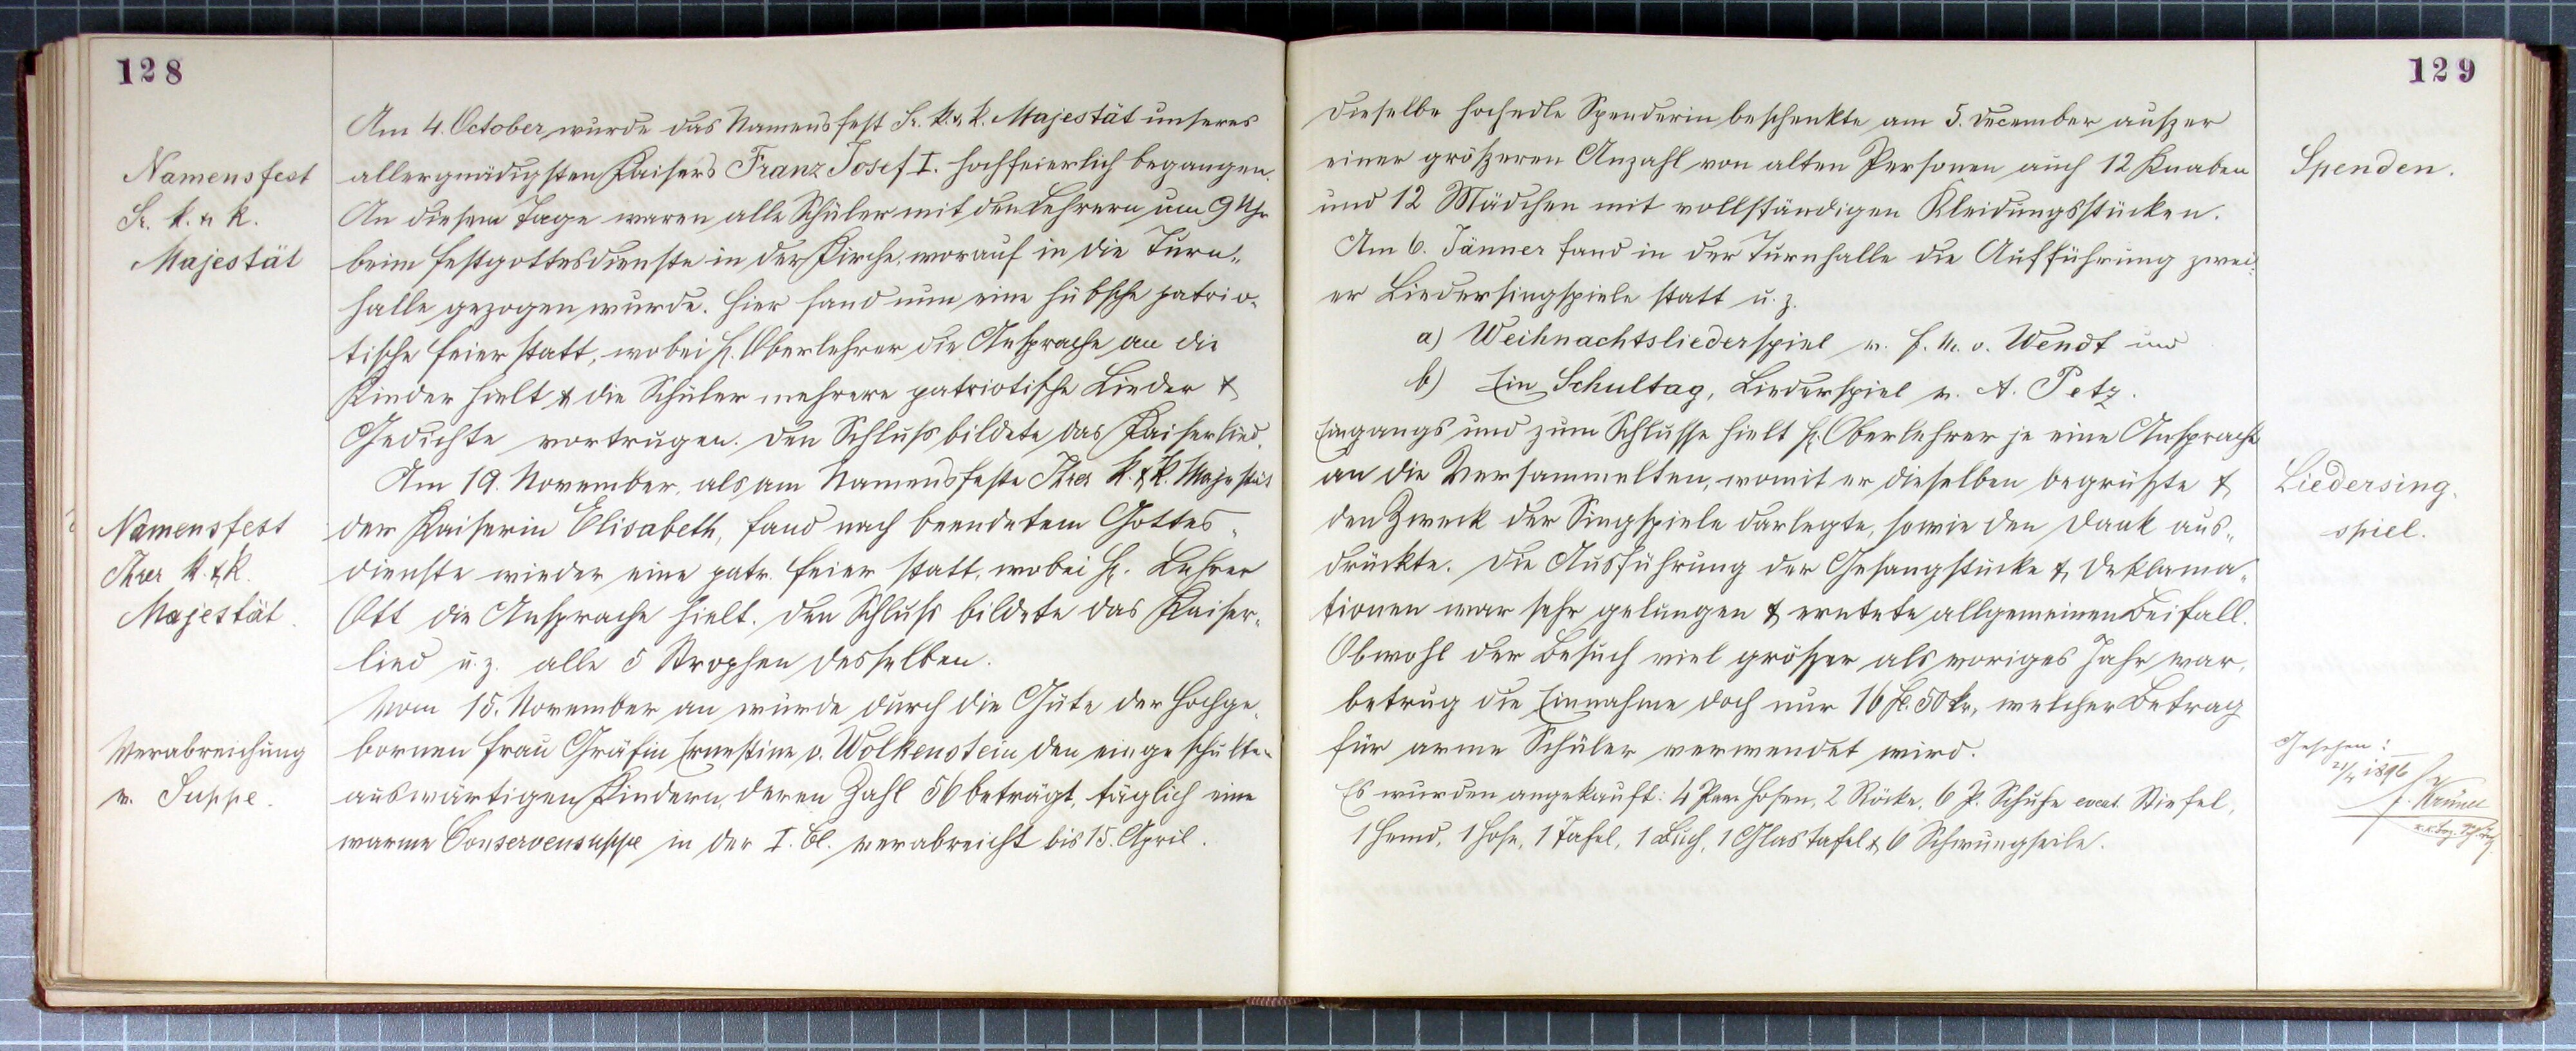 128
Namensfest
Sr. k. u. k.
Majestät
Am 4. October wurde das Namensfest Sr. k. u. k. Majestät unseres
allergnädigsten Kaisers Franz Josef I. hochfeierlich begangen.
An diesem Tage waren alle Schüler mit den Lehrern um 9 Uhr
beim Festgottesdienste in der Kirche, worauf in die Turn-
halle gezogen wurde. Hier fand nun eine hübsche patrio-
tische Feier statt, wobei H. Oberlehrer die Ansprache an die
Kinder hielt & die Schüler mehrere patriotische Lieder &
Gedichte vortrugen. Den Schluß bildete das Kaiserlied.
Namensfest
Ihrer k. & k.
Majestät.
Am 19. November, als am Namensfeste Ihrer k. & k. Majestät
der Kaiserin Elisabeth, fand nach beendetem Gottes-
dienste wieder eine patr. Feier statt, wobei H. Lehrer
Ott die Ansprache hielt. Den Schluß bildete das Kaiser-
lied u. z. alle 5 Strophen desselben.
Verabreichung
v. Suppe.
Vom 15. November an wurde durch die Güte der hochge-
bornen Frau Gräfin Ernestine v. Wolkenstein den eingeschulten
auswärtigen Kindern, deren Zahl 56 beträgt, täglich eine
warme Conservensuppe in der I. Cl. verabreicht bis 15. April.
129
Spenden.
Dieselbe hochedle Spenderin beschenkte am 5. December außer
einer größeren Anzahl von alten Personen auch 12 Knaben
und 12 Mädchen mit vollständigen Kleidungsstücken.
Am 6. Jänner fand in der Turnhalle die Aufführung zwei-
er Liedersingspiele statt u. z.
a) Weihnachtsliederspiel v. F. M. v. Wendt und
b) Ein Schultag, Liederspiel v. A. Petz.
Liedersing-
spiel.
Eingangs und zum Schlusse hielt H. Oberlehrer je eine Ansprache
an die Versammelten, womit er dieselben begrüßte &
den Zweck der Singspiele darlegte, sowie den Dank aus-
drückte. Die Ausführung der Gesangstücke & Deklama-
tionen war sehr gelungen & erntete allgemeinen Beifall.
Obwohl der Besuch viel größer als voriges Jahr war,
betrug die Einnahme doch nur 16 fl. 50 kr., welcher Betrag
für arme Schüler verwendet wird.
Es wurden angekauft: 4 Paar Hosen, 2 Röcke, 6 P. Schuhe event. Stiefel,
1 Hemd, 1 Hose, 1 Tafel, 1 Buch, 1 Glastafel & 6 Schwungseile.
Gesehen:
1896